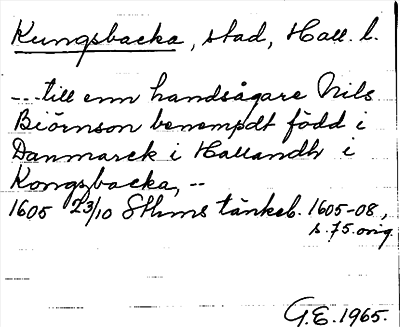 Kungsbacka, stad, Hall. l.
--- till enn handsågare Nils
Biörnson benempdt född i
Danmarck i Hallandh i
Kongsbacka, --
1605 23/10 Sthms tänkeb. 1605-08,
s. 75. orig.
G.E. 1965.